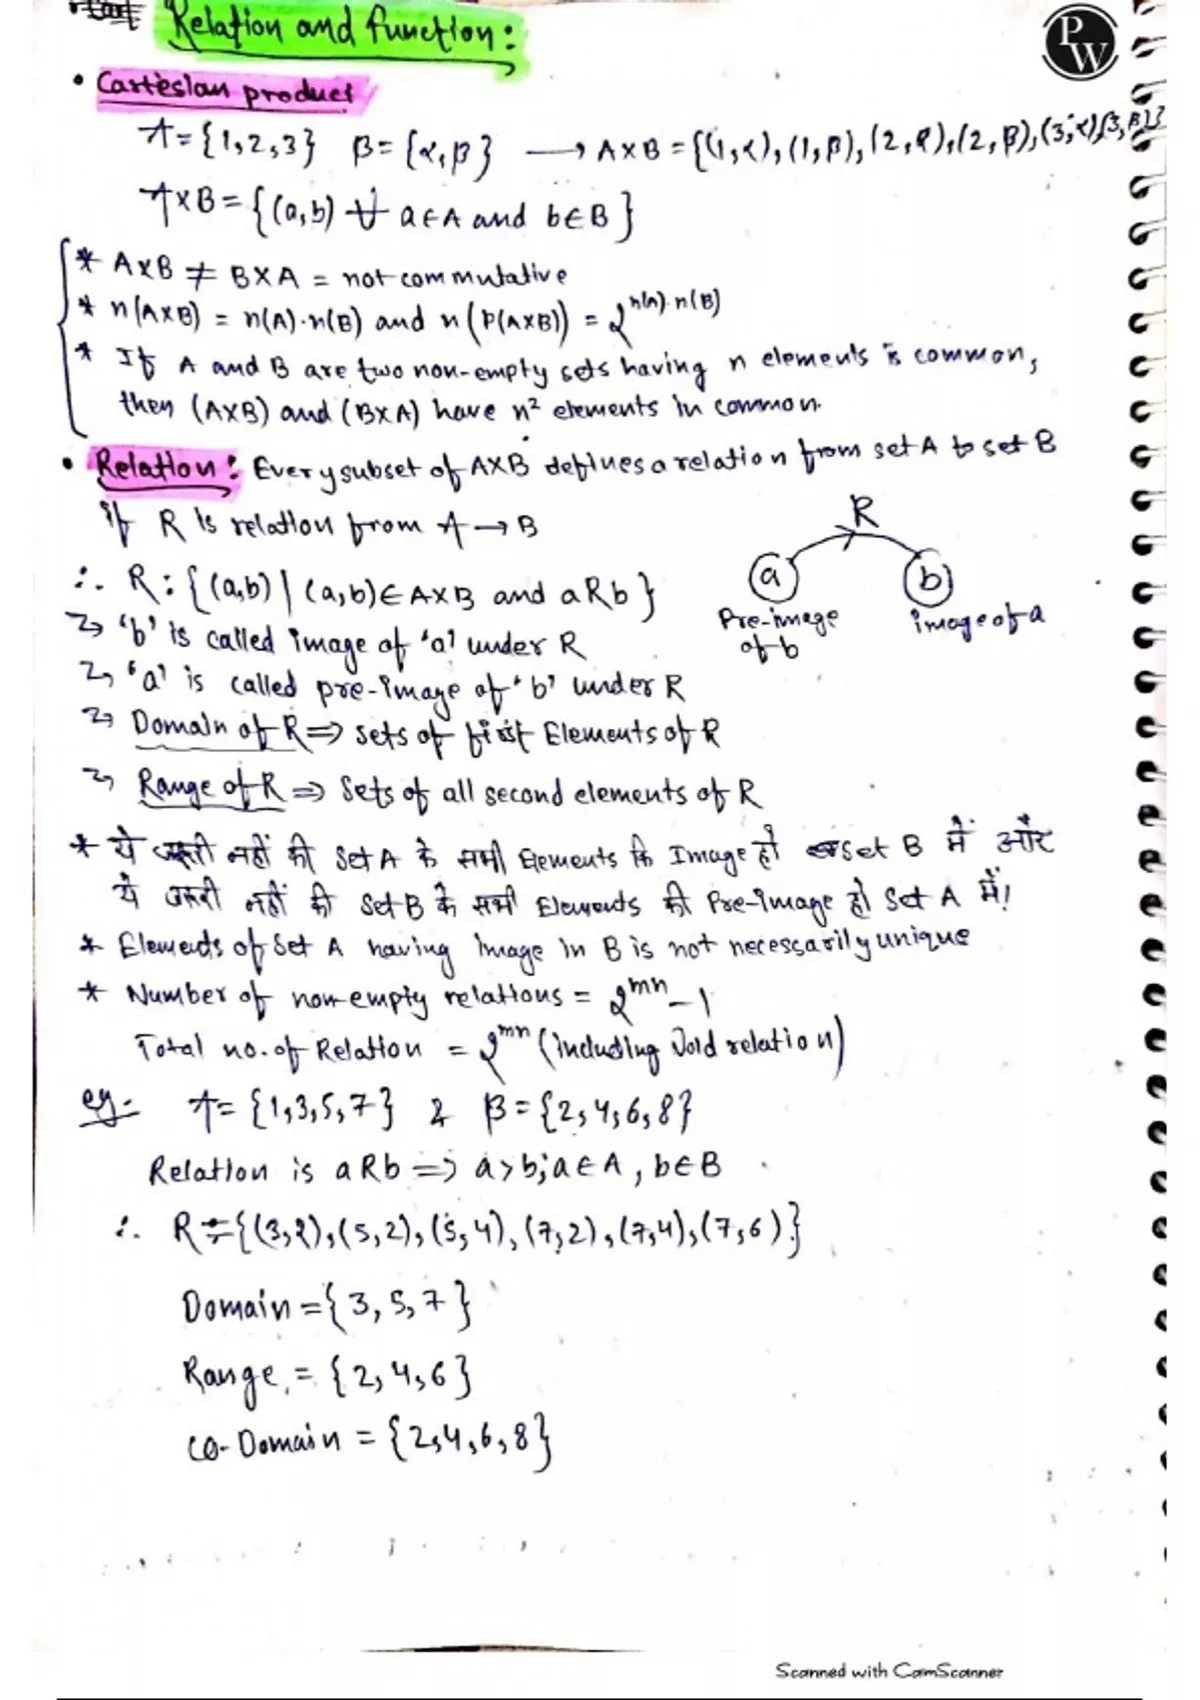 Relation and function:
PW
• Cartesian product
A={1,2,3} B={α,β} ⟶ A×B={(1,α),(1,β),(2,α),(2,β),(3,α),(3,β)}
A×B={(a,b) ∀ a∈A and b∈B}
* A×B ≠ B×A = not commutative
* n(A×B) = n(A)·n(B) and n(P(A×B)) = 2^{n(A)·n(B)}
* If A and B are two non-empty sets having n elements is common,
then (A×B) and (B×A) have n² elements in common.
• Relation: Every subset of A×B defines a relation from set A to set B
if R is relation from A→B
∴ R:{(a,b)|(a,b)∈A×B and aRb}
R
a
b
Pre-image of b
image of a
→ 'b' is called image of 'a' under R
→ 'a' is called pre-image of 'b' under R
→ Domain of R ⇒ sets of first Elements of R
→ Range of R ⇒ Sets of all second elements of R
* ये जरूरी नहीं की Set A के सभी Elements कि Image हो Set B में और
ये जरूरी नहीं की Set B के सभी Elements की Pre-image हो Set A में!
* Elements of Set A having image in B is not necessarily unique
* Number of non-empty relations = 2^{mn}-1
Total no. of Relation = 2^{mn} (including void relation)
eg- A={1,3,5,7} & B={2,4,6,8}
Relation is aRb ⇒ a>b; a∈A, b∈B
∴ R={(3,2),(5,2),(5,4),(7,2),(7,4),(7,6)}
Domain={3,5,7}
Range = {2,4,6}
co-Domain = {2,4,6,8}
Scanned with CamScanner